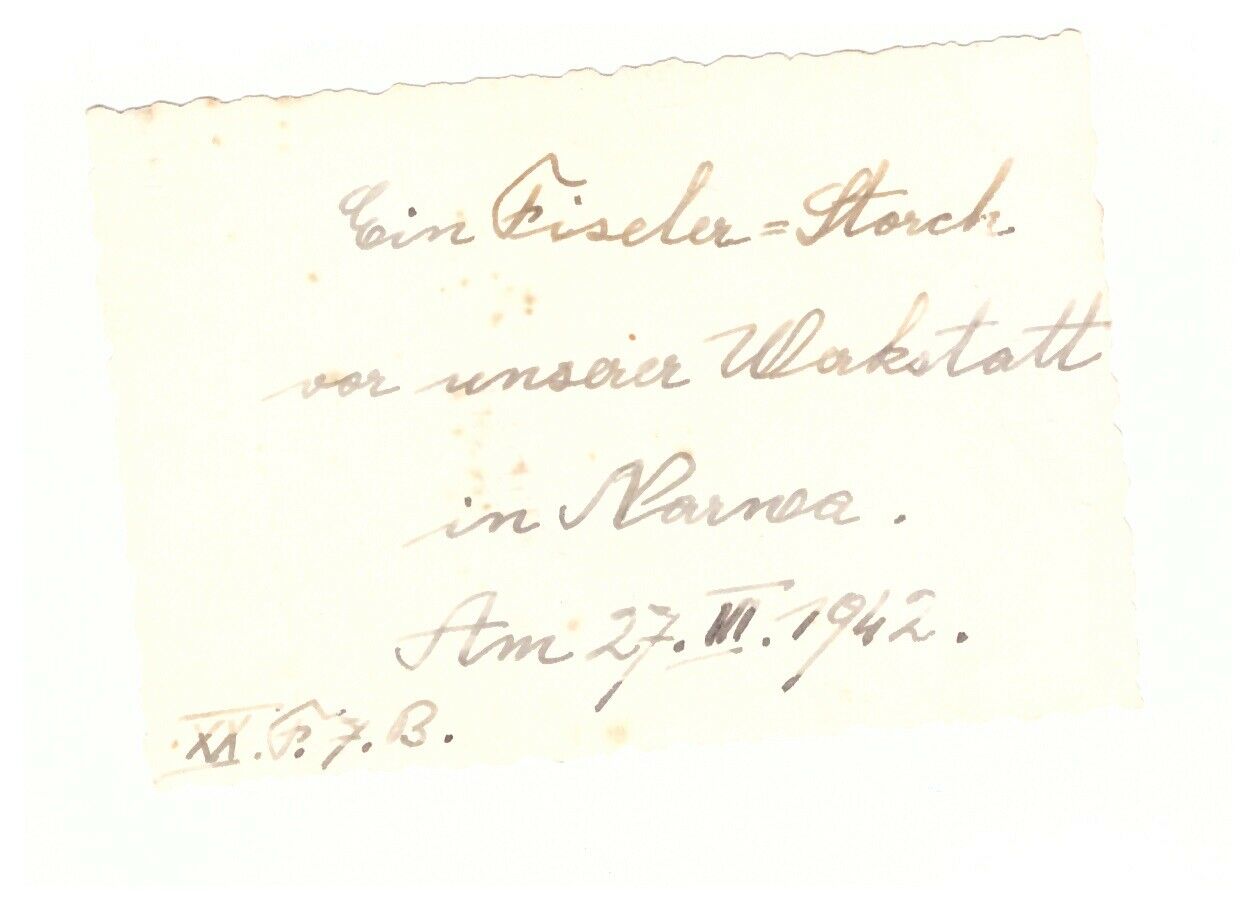 Ein Fiseler=Storch
vor unserer Werkstatt
in Narwa.
Am 27. III. 1942.
XI. F. 7. B.